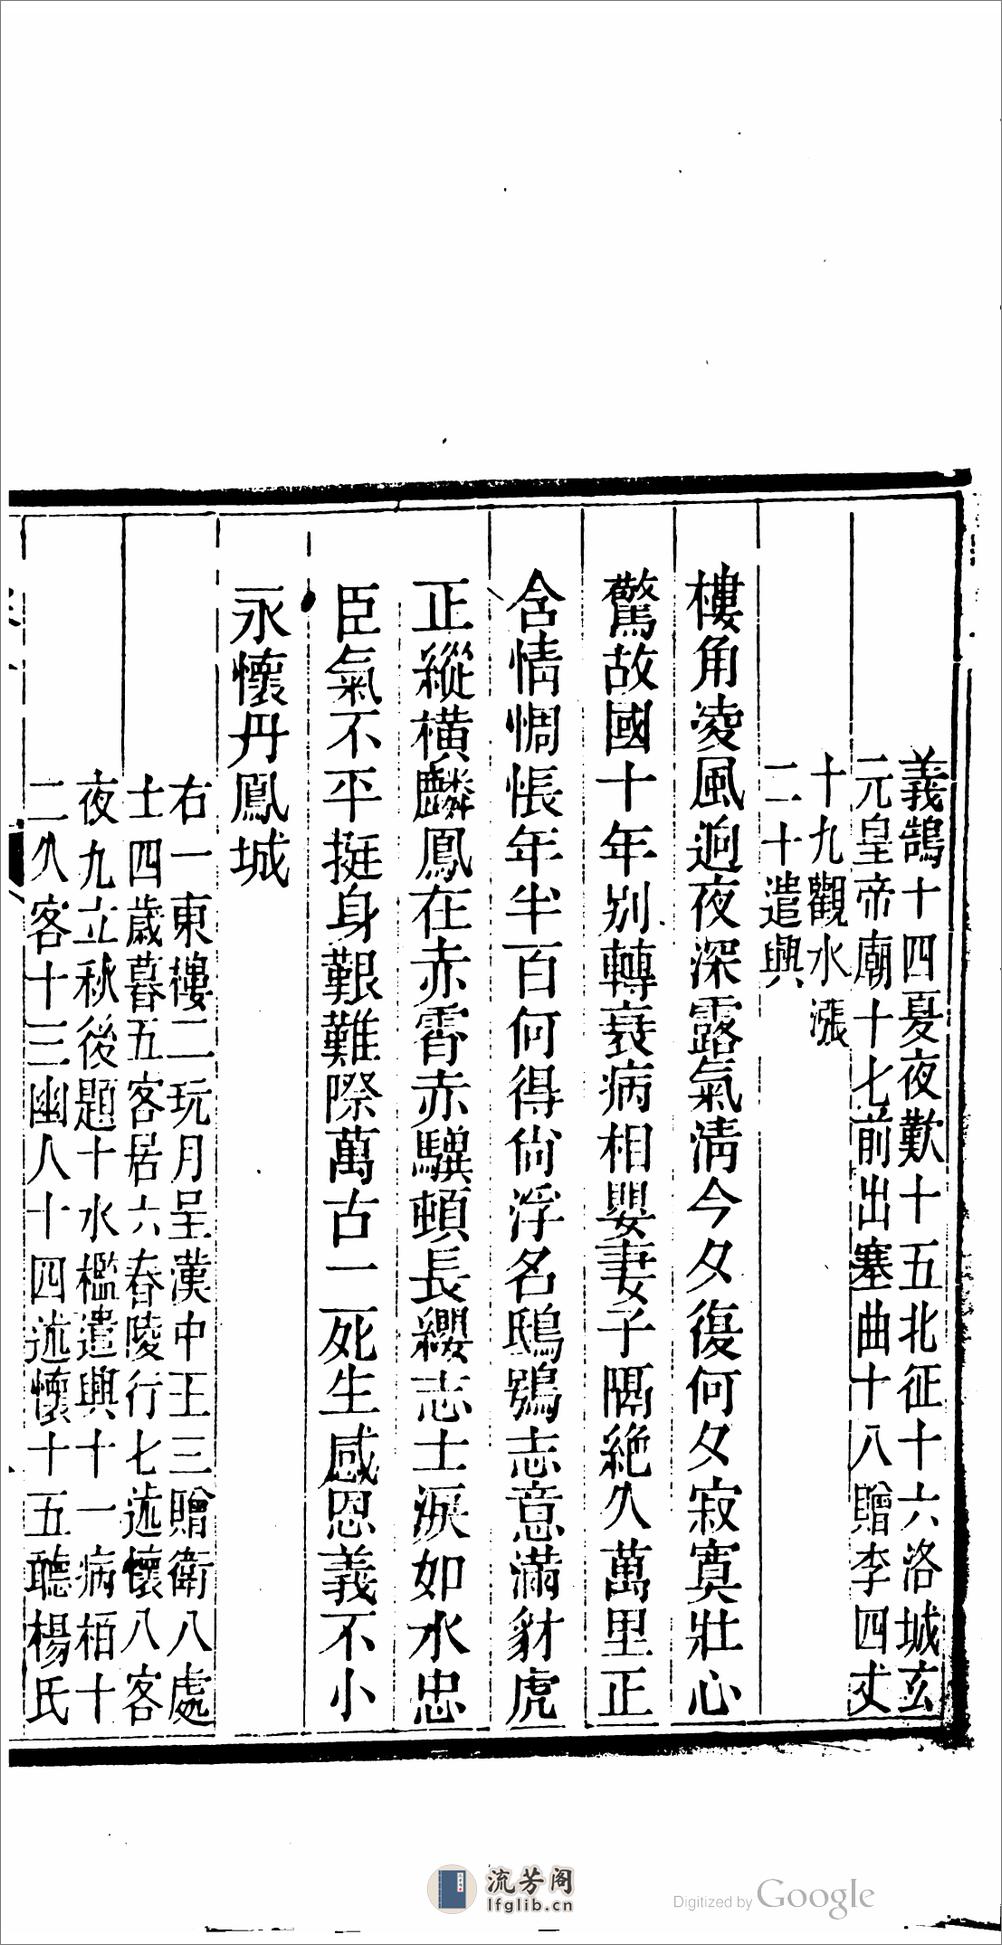 義鶻十四夏夜歎十五北征十六洛城玄
元皇帝廟十七前出塞曲十八贈李四丈
十九觀水漲
二十遣興
樓角凌風迥夜深露氣清今夕復何夕寂寞壯心
驚故國十年别轉衰病相嬰妻子隔絶久萬里正
含情惆悵年半百何得尙浮名鴟鴞志意滿豺虎
正縱横麟鳳在赤霄赤驥頓長纓志士淚如水忠
臣氣不平挺身艱難際萬古一死生感恩義不小
永懷丹鳳城
右一東樓二玩月呈漢中王三贈衛八處
士四歲暮五客居六舂陵行七述懷八客
夜九立秋後題十水檻遣興十一病栢十
二久客十三幽人十四述懷十五聽楊氏
流芳阁
lfglib.cn
Digitized by Google